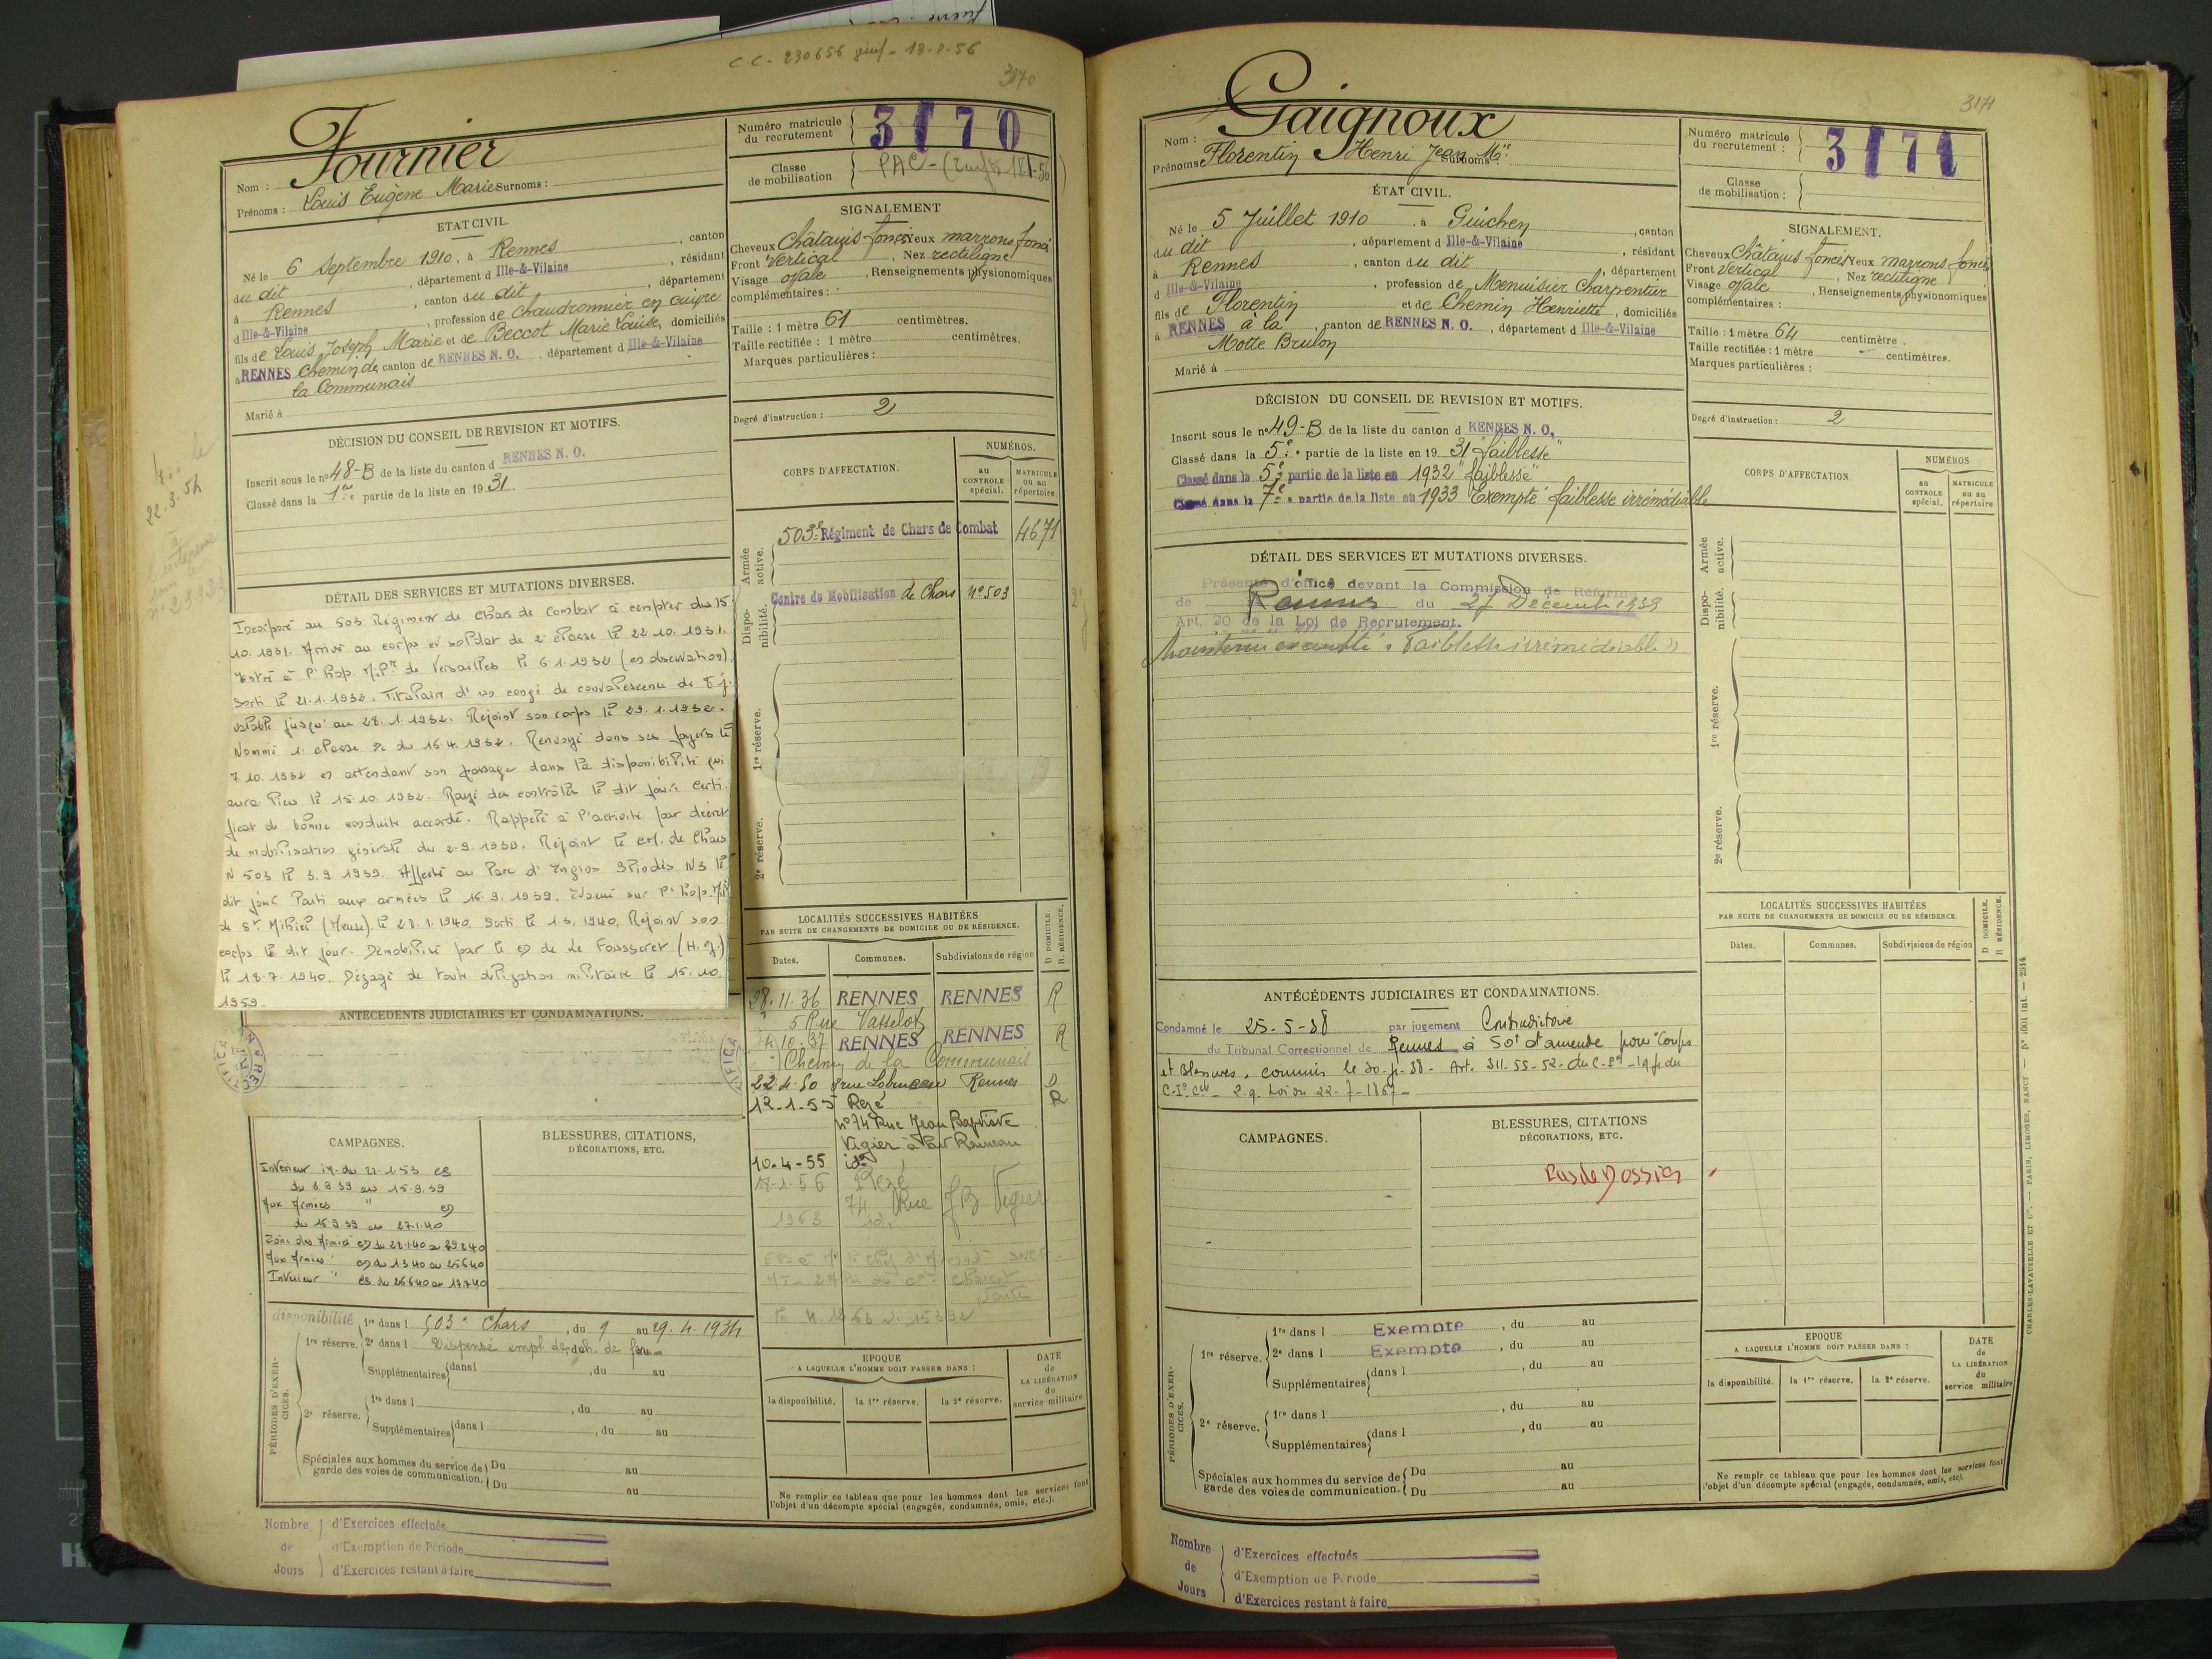 C.C. - 230656
3170
Nom : Fournier
Prénoms : Louis Eugène Marie Surnoms :
Numéro matricule du recrutement 3170
Classe de mobilisation
ETAT CIVIL.
Né le 6 Septembre 1910, à Rennes, canton
du dit, département d Ille-&-Vilaine, résidant
à Rennes, canton du dit, département
d Ille-&-Vilaine, profession de Chaudronnier en cuivre
fils de Louis Joseph Marie et de Beccot Marie Louise, domiciliés
à RENNES Chemin de canton de RENNES N. O. département d Ille-&-Vilaine
la Communais
Marié à
SIGNALEMENT
Cheveux Châtains foncés Yeux marrons foncé
Front Vertical, Nez rectiligne
Visage ovale, Renseignements physionomiques
complémentaires :
Taille : 1 mètre 61 centimètres.
Taille rectifiée : 1 mètre centimètres.
Marques particulières :
Degré d'instruction : 2
DÉCISION DU CONSEIL DE REVISION ET MOTIFS.
Inscrit sous le n° 48-B de la liste du canton d RENNES N. O.
Classé dans la 1re partie de la liste en 19 31.
22.3.54
CORPS D'AFFECTATION.
NUMÉROS.
au CONTROLE spécial.
MATRICULE ou au répertoire.
Armée active.
503e Régiment de Chars de Combat 4671
Disponibilité.
Centre de Mobilisation de Chars N° 503
1re réserve.
2e réserve.
DÉTAIL DES SERVICES ET MUTATIONS DIVERSES.
Incorporé au 503 Régiment de Chars de combat à compter du 15.
10.1931. Arrivé au corps et soldat de 2e classe le 22.10.1931.
Entré à l'hop. de Versailles le 6.1.1932 (en observation)
Sorti le 21.1.1932. Titulaire d'un congé de convalescence de 8 j.
valable jusqu'au 28.1.1932. Rejoint son corps le 29.1.1932.
Nommé 1. classe du 16.4.1932. Renvoyé dans ses foyers le
7.10.1932 en attendant son passage dans la disponibilité qui
aura lieu le 15.10.1932. Rayé des contrôles le dit jour. Certi
ficat de bonne conduite accordé. Rappelé à l'activité par décret
de mobilisation générale du 2.9.1939. Rejoint le de Chars
N 503 le 3.9.1939. Affecté au Parc d'Engins Blindés N3 le
dit jour. Parti aux armées le 16.9.1939. Évacué sur l'hop.
de St Mihiel (Meuse) le 28.1.1940. Sorti le 1.3.1940. Rejoint son
corps le dit jour. Démobilisé par le de Le Fousseret (H. g.)
le 18.7.1940. Dégagé de toute obligation militaire le 15.10.
1959.
ANTÉCÉDENTS JUDICIAIRES ET CONDAMNATIONS.
LOCALITÉS SUCCESSIVES HABITÉES
PAR SUITE DE CHANGEMENTS DE DOMICILE OU DE RÉSIDENCE.
D DOMICILE.
R RÉSIDENCE.
Dates. Communes. Subdivisions de région
28.11.36 RENNES RENNES R
5 Rue Vasselot
10.37 RENNES RENNES R
Chemin de la Communais
22.4.50 Rennes D
12-1-55 Rezé R
n° 74 Rue Jean Baptiste
Vigier à Pont Rousseau
10-4-55 id°
1-56 Rezé
74 Rue JB Vigier
1963 id.
CAMPAGNES.
BLESSURES, CITATIONS,
DÉCORATIONS, ETC.
du 3.9.39 au 15.9.39
Aux Armées "
du 16.9.39 au 27.1.40
Zone des Armées du 28.1.40 au 29.2.40
Aux Armées du 1.3.40 au 25.6.40
Intérieur " du 26.6.40 au 18.7.40
PÉRIODES D'EXERCICES.
disponibilité
1re réserve.
1re dans l 503e Chars, du 9 au 29.4.1934
2e dans l Dispensé
Supplémentaires dans l, du au
2e réserve.
1re dans l, du au
Supplémentaires dans l, du au
Spéciales aux hommes du service de garde des voies de communication. Du au
Du au
EPOQUE
A LAQUELLE L'HOMME DOIT PASSER DANS :
la disponibilité. la 1re réserve. la 2e réserve.
DATE de LA LIBÉRATION du service militaire
Ne remplir ce tableau que pour les hommes dont les services font
l'objet d'un décompte spécial (engagés, condamnés, omis, etc.).
Nombre de Jours
d'Exercices effectués
d'Exemption de Période
d'Exercices restant à faire
3171
Nom : Gaignoux
Prénoms : Florentin Henri Jean Mie Surnoms :
Numéro matricule du recrutement : 3171
Classe de mobilisation :
ÉTAT CIVIL.
Né le 5 Juillet 1910, à Guichen, canton
du dit, département d Ille-&-Vilaine, résidant
à Rennes, canton du dit, département
d Ille-&-Vilaine, profession de Menuisier Charpentier
fils de Florentin et de Chemin Henriette, domiciliés
à RENNES à la, canton de RENNES N. O., département d Ille-&-Vilaine
Motte Brulon
Marié à
SIGNALEMENT.
Cheveux Châtains foncés Yeux marrons foncés
Front Vertical, Nez rectiligne
Visage ovale, Renseignements physionomiques
complémentaires :
Taille : 1 mètre 64 centimètre.
Taille rectifiée : 1 mètre centimètres.
Marques particulières :
Degré d'instruction : 2
DÉCISION DU CONSEIL DE REVISION ET MOTIFS.
Inscrit sous le n° 49-B de la liste du canton d RENNES N. O.
Classé dans la 5e partie de la liste en 19 31 "faiblesse"
Classé dans la 5e partie de la liste en 1932 "faiblesse"
Classé dans la 7e partie de la liste en 1933 Exempté faiblesse irrémédiable
CORPS D'AFFECTATION
NUMÉROS
au CONTROLE spécial.
MATRICULE ou au répertoire
Armée active.
Disponibilité.
1re réserve.
2e réserve.
DÉTAIL DES SERVICES ET MUTATIONS DIVERSES.
Présenté d'office devant la Commission de Réforme
de Rennes du 27 Décembre 1939
Art. 20 de la Loi de Recrutement.
Maintenu exempté "Faiblesse irrémédiable"
LOCALITÉS SUCCESSIVES HABITÉES
PAR SUITE DE CHANGEMENTS DE DOMICILE OU DE RÉSIDENCE.
D DOMICILE.
R RÉSIDENCE.
Dates. Communes. Subdivisions de région
ANTÉCÉDENTS JUDICIAIRES ET CONDAMNATIONS.
Condamné le 25-5-38 par jugement Contradictoire
du Tribunal Correctionnel de Rennes à 50f d'amende pour "Coups
et Blessures, commis le 30-- 38 - Art. 311-55-52- du C.Pal - 194 du
C.I.Cel - 2.9. Loi du 22-7-1867 -
CAMPAGNES.
BLESSURES, CITATIONS
DÉCORATIONS, ETC.
Pas de Dossier
PÉRIODES D'EXERCICES.
1re réserve.
1re dans l Exempte, du au
2e dans l Exempte, du au
Supplémentaires dans l, du au
2e réserve.
1re dans l, du au
Supplémentaires dans l, du au
Spéciales aux hommes du service de garde des voies de communication. Du au
Du au
EPOQUE
A LAQUELLE L'HOMME DOIT PASSER DANS :
la disponibilité. la 1re réserve. la 2e réserve.
DATE de LA LIBÉRATION du service militaire
Ne remplir ce tableau que pour les hommes dont les services font
l'objet d'un décompte spécial (engagés, condamnés, omis, etc).
CHARLES-LAVAUZELLE ET Cie. — PARIS, LIMOGES, NANCY — N° 1001 int. — 2514
Nombre de Jours
d'Exercices effectués
d'Exemption de Période
d'Exercices restant à faire